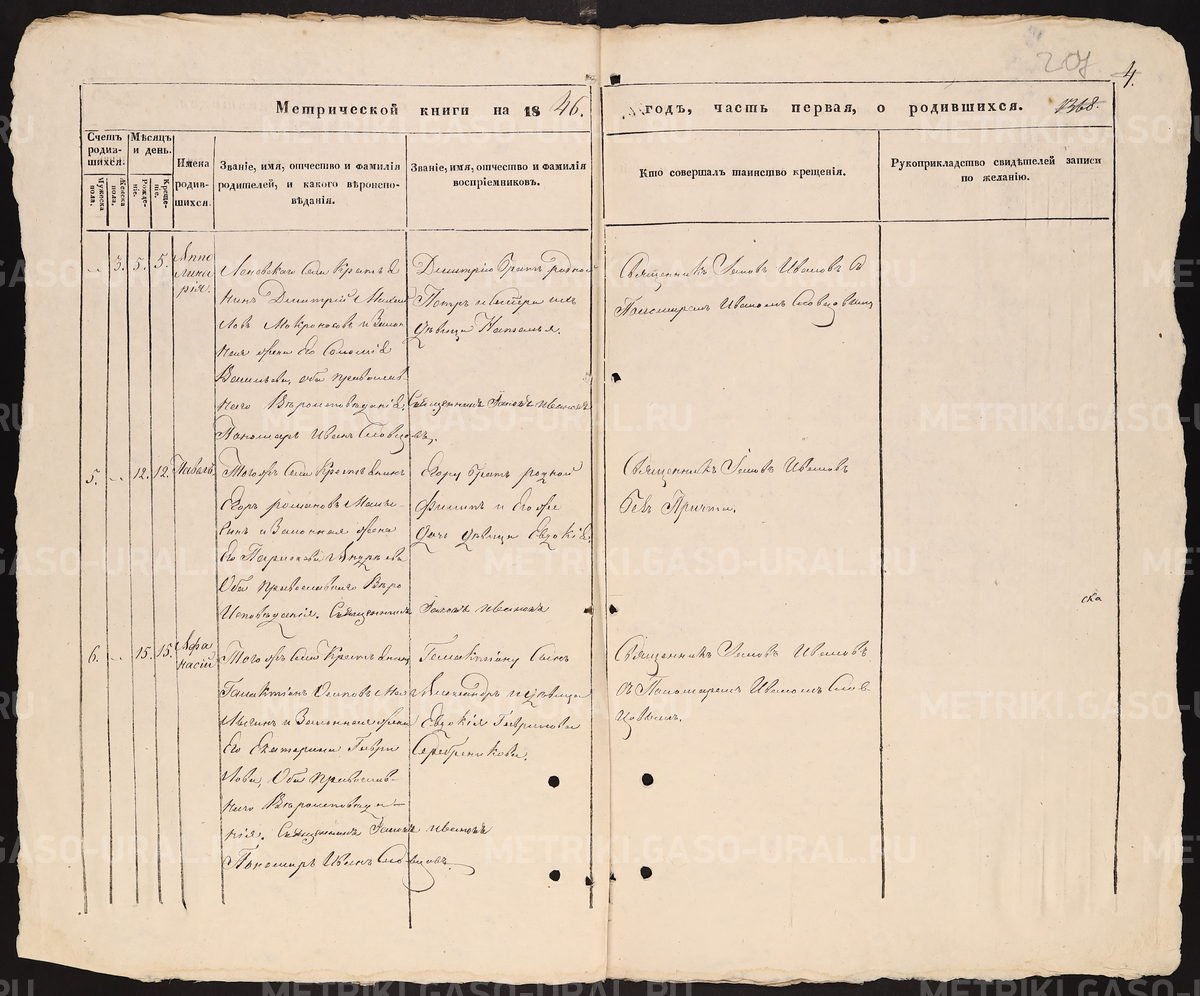 207
4.
Метрической книги на 1846.
годъ, часть первая, о родившихся.
1368.
Счетъ родившихся.
Мужеска пола.
Женска пола.
Мѣсяцъ и день.
Рожденіе.
Крещеніе.
Имена родившихся.
Званіе, имя, отчество и фамилія
родителей, и какого вѣроиспо-
вѣданія.
Званіе, имя, отчество и фамилія
воспріемниковъ.
Кто совершалъ таинство крещенія.
Рукоприкладство свидѣтелей записи
по желанію.
3. 5. 5.
Аппо
линa
рія.
Села Крестья
нинъ Димитрій
Мокроносовъ и Закон
ная жена его Соломія
Васильева, оба православ
наго Вѣроисповѣданія.
Пономарь Иванъ Словцовъ.
Димитрію братъ родной
Петръ и сестра ихъ
дѣвица Наталья.
Священникъ Іаковъ Ивановъ
Священникъ Іаковъ Ивановъ съ
Пономаремъ Иваномъ Словцовымъ
5. 12. 12.
Павелъ
Тогожъ Села Крестьянинъ
Егоръ Романовъ
и Законная жена
его Парасковья Андреева
Оба православнаго Вѣро
исповѣданія. Священникъ Іаковъ Ивановъ
Егору братъ родной
Филипъ и Егоже
дочь дѣвица Евдокія.
Священникъ Іаковъ Ивановъ
безъ Причта.
ска
6. 15. 15.
Афа
насій
Тогожъ Села Крестьянинъ
Галактіонъ Осиповъ
и Законная жена
его Екатерина Гаври
лова, Оба православ-
наго Вѣроисповѣда-
нія. Священникъ Іаковъ Ивановъ
Пономарь Иванъ Словцовъ.
Галактіону Сынъ
Александръ и дѣвица
Евдокія Гаврилова
Серебреникова.
Священникъ Іаковъ Ивановъ
съ Пономаремъ Иваномъ Слов
цовымъ.
METRIKI.GASO-URAL.RU